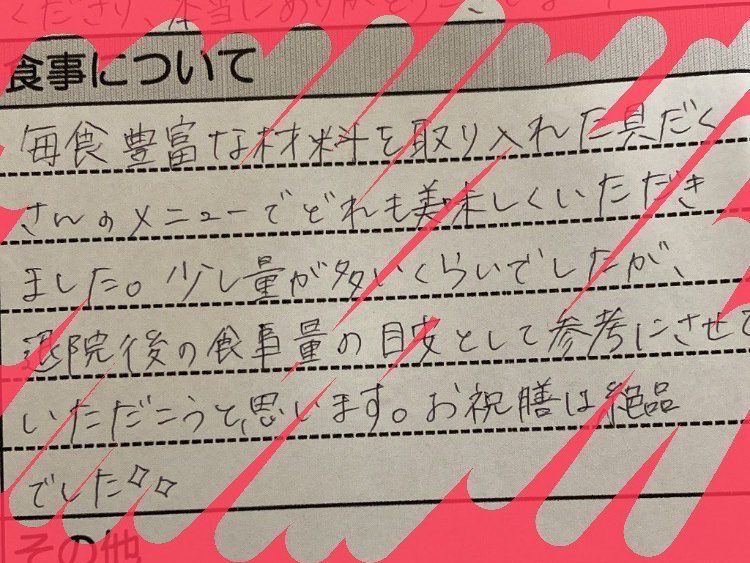 くださり、本当にありがとうございます
食事について
毎食豊富な材料を取り入れた具だく
さんのメニューでどれも美味しくいただき
ました。少し量が多いくらいでしたが、
退院後の食事量の目安として参考にさせて
いただこうと思います。お祝膳は絶品
でした
その他